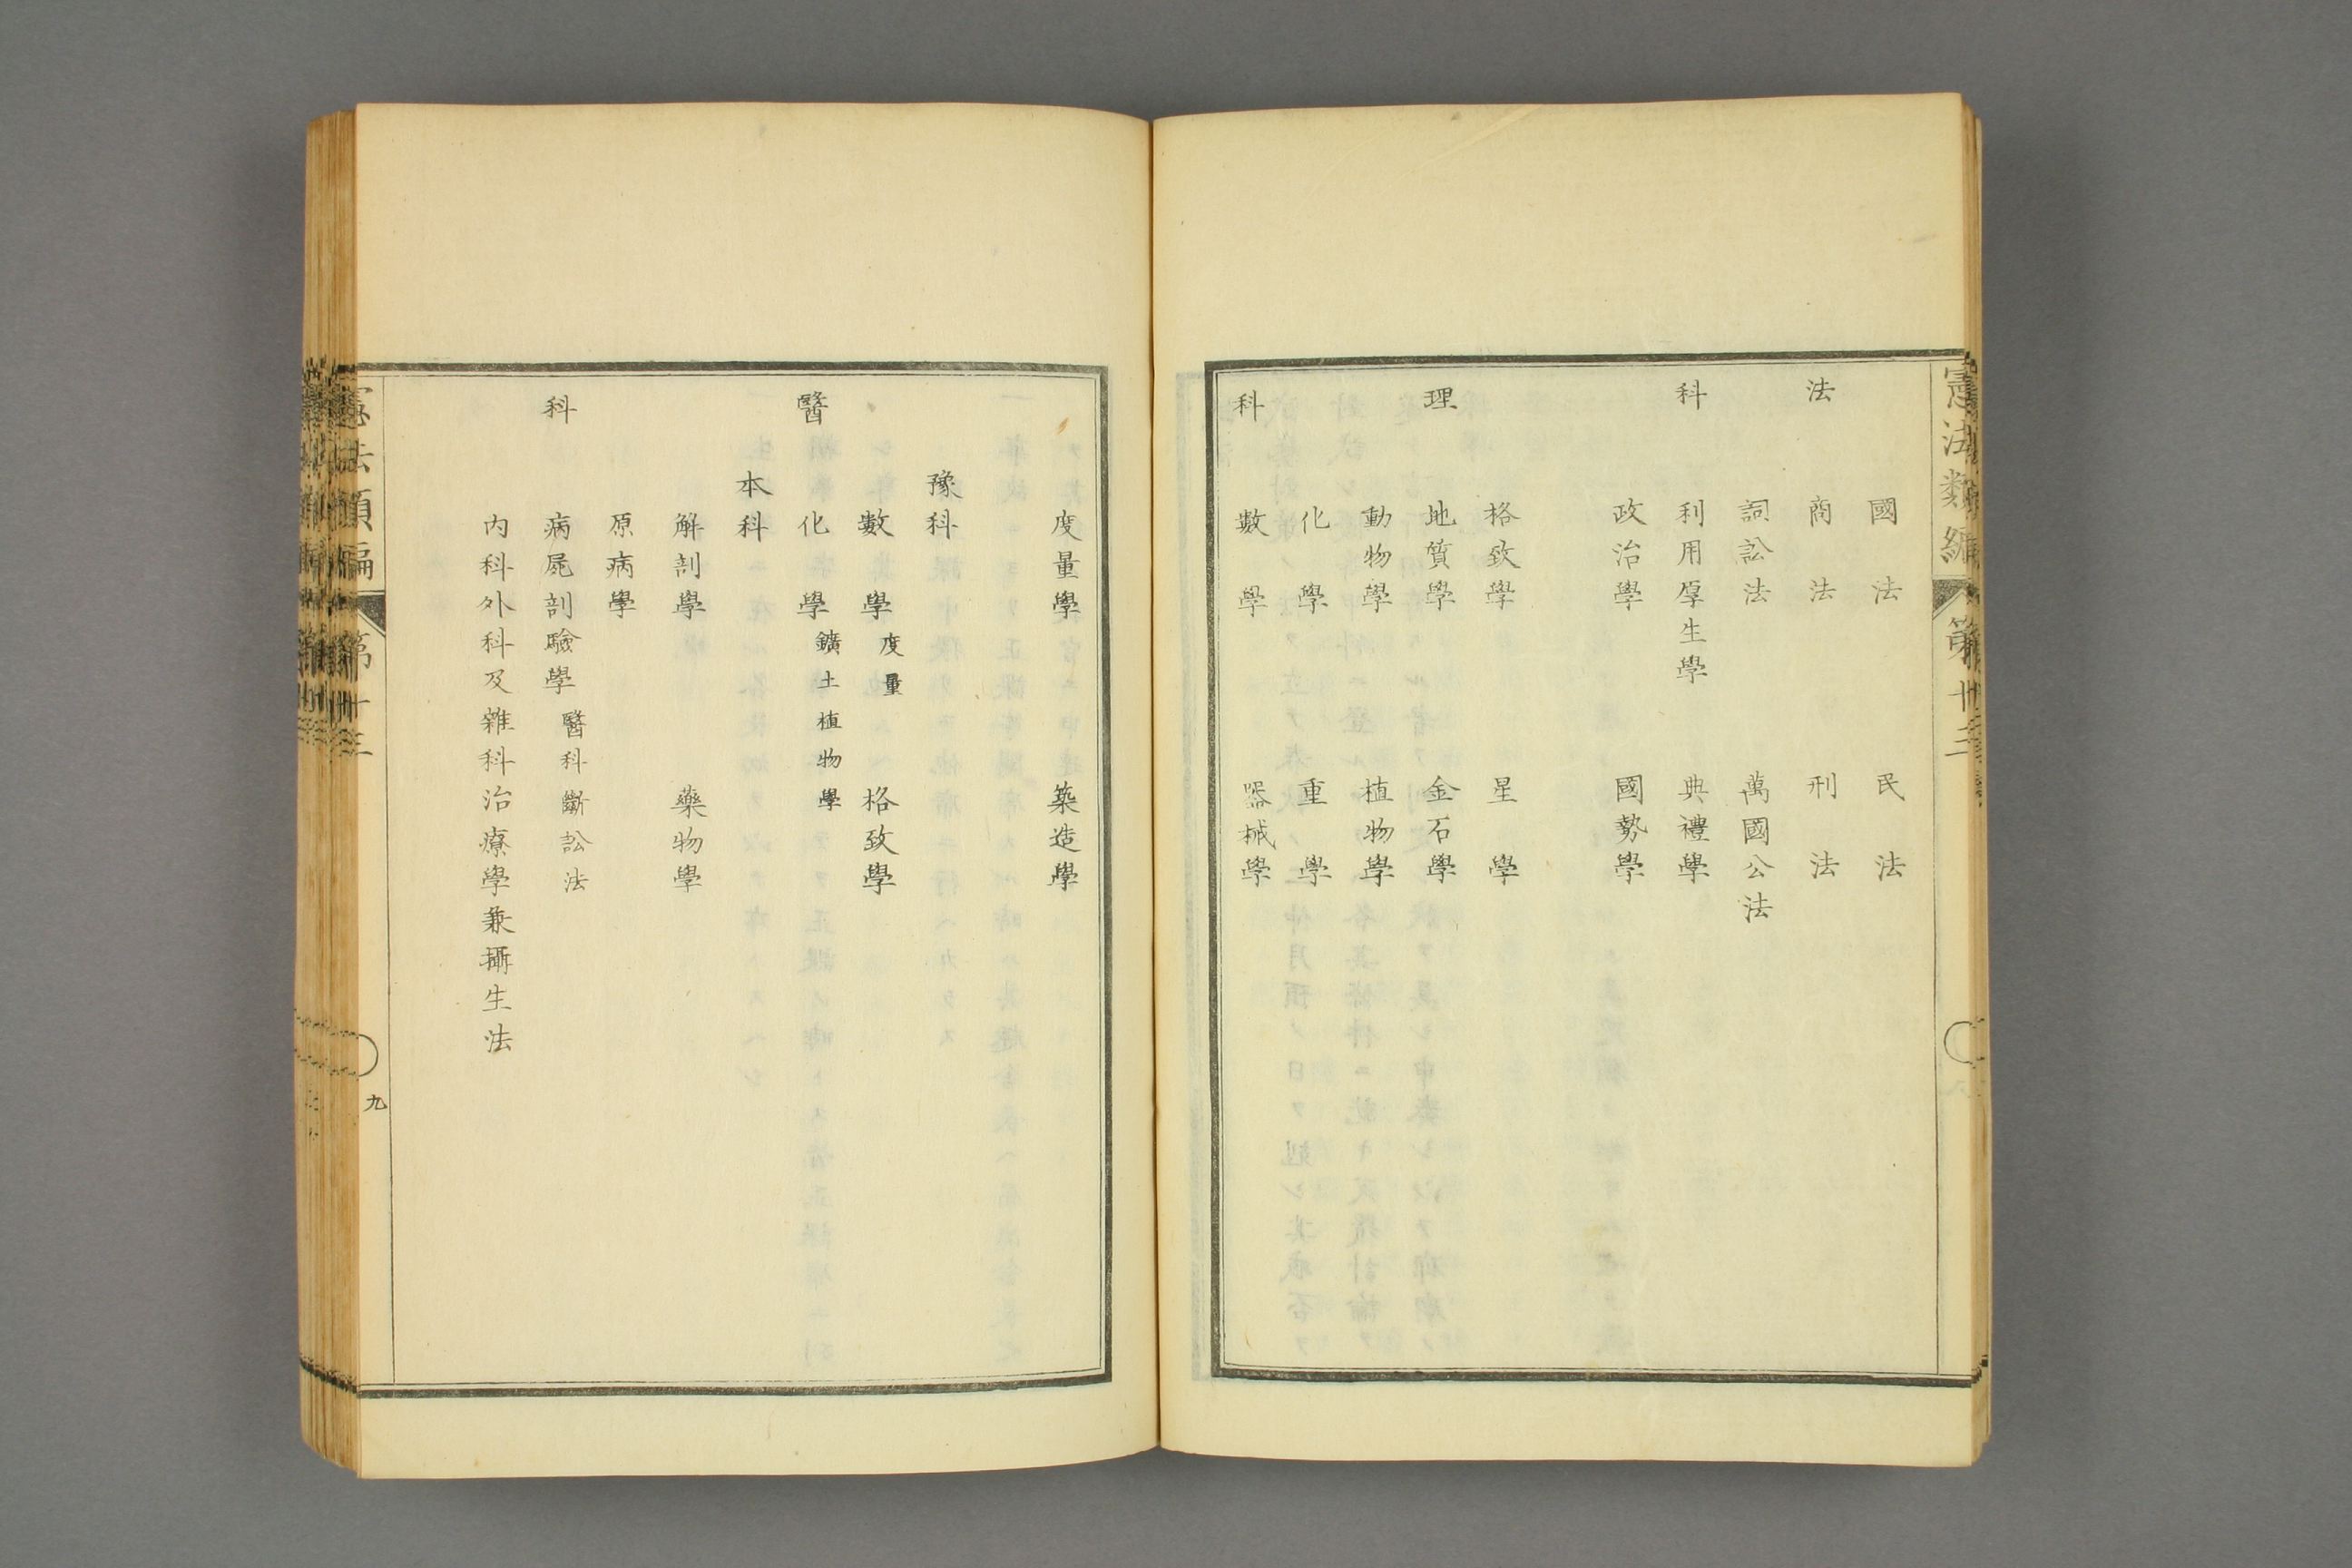 憲法類編 第廿三
國法 民法
法 商法 刑法
詞訟法 萬國公法
科 利用厚生學 典禮學
政治學 國勢學
格致學 星學
理 地質學 金石學
動物學 植物學
化學 重學
科 數學 器械學
度量學 築造學
豫科
數學 度量 格致學
醫 化學 鑛土植物學
本科
解剖學 藥物學
原病學
科 病屍剖驗學 醫科斷訟法
內科外科及雜科治療學兼攝生法
九